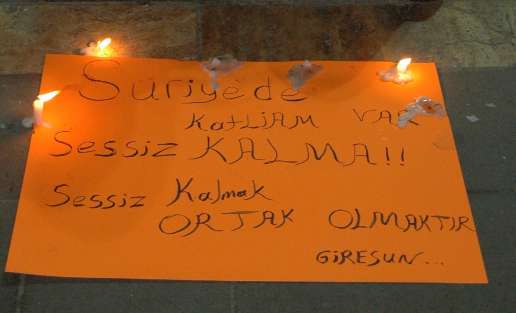 Suriyede
KatLiAM VAR
Sessiz KALMA!!
Sessiz Kalmak
ORTAK OLMAKTIR
GiRESUN...